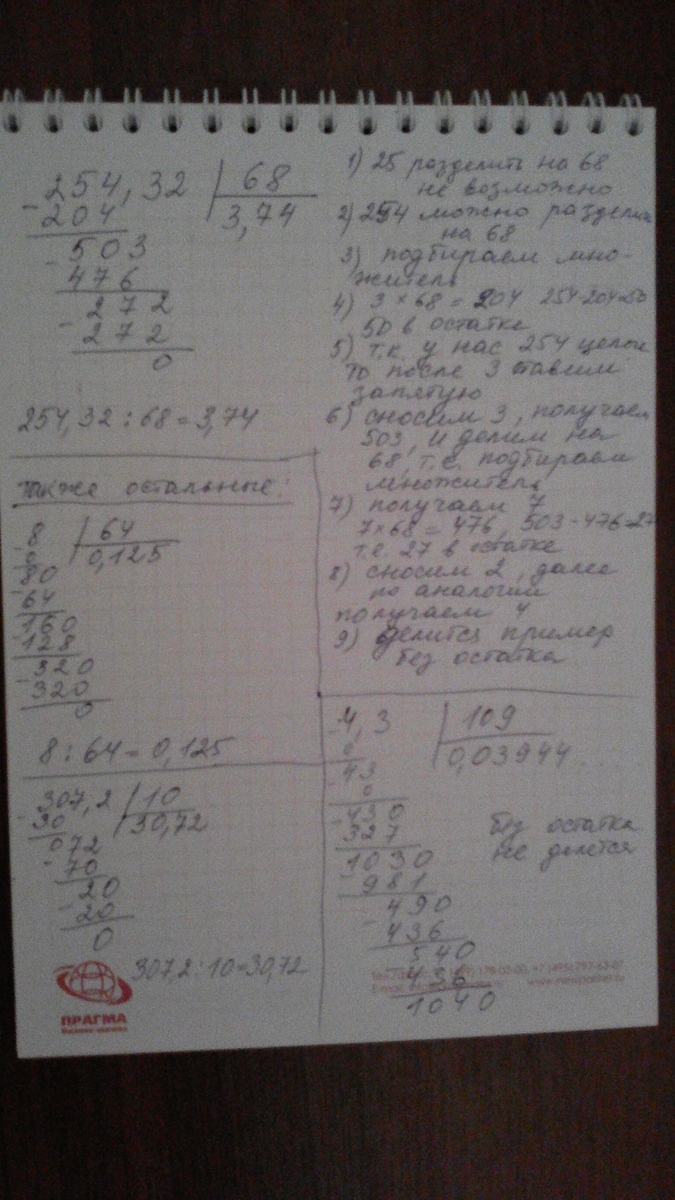 254,32 | 68
- 204 3,74
- 503
476
- 272
272
0
254,32 : 68 = 3,74
1) 25 разделить на 68
не возможно
2) 254 можно разделить
на 68
3) подбираем мно-
житель
4) 3 × 68 = 204 254-204=50
50 в остатке
5) т.к. у нас 254 целое
то после 3 ставим
запятую
6) сносим 3, получаем
503, и делим на
68, т.е. подбираем
множитель
7) получаем 7
7×68 = 476, 503-476=27
т.е. 27 в остатке
8) сносим 2, далее
по аналогии
получаем 4
9) делится пример
без остатка
также остальные:
- 8 | 64
0 0,125
- 80
64
- 160
128
- 320
320
0
8 : 64 = 0,125
- 307,2 | 10
30 30,72
072
- 70
- 20
20
0
307,2 : 10 = 30,72
- 4,3 | 109
0 0,03944...
- 43
0
- 430
327
- 1030
981
- 490
436
540
436
1040
без остатка
не делется
ПРАГМА